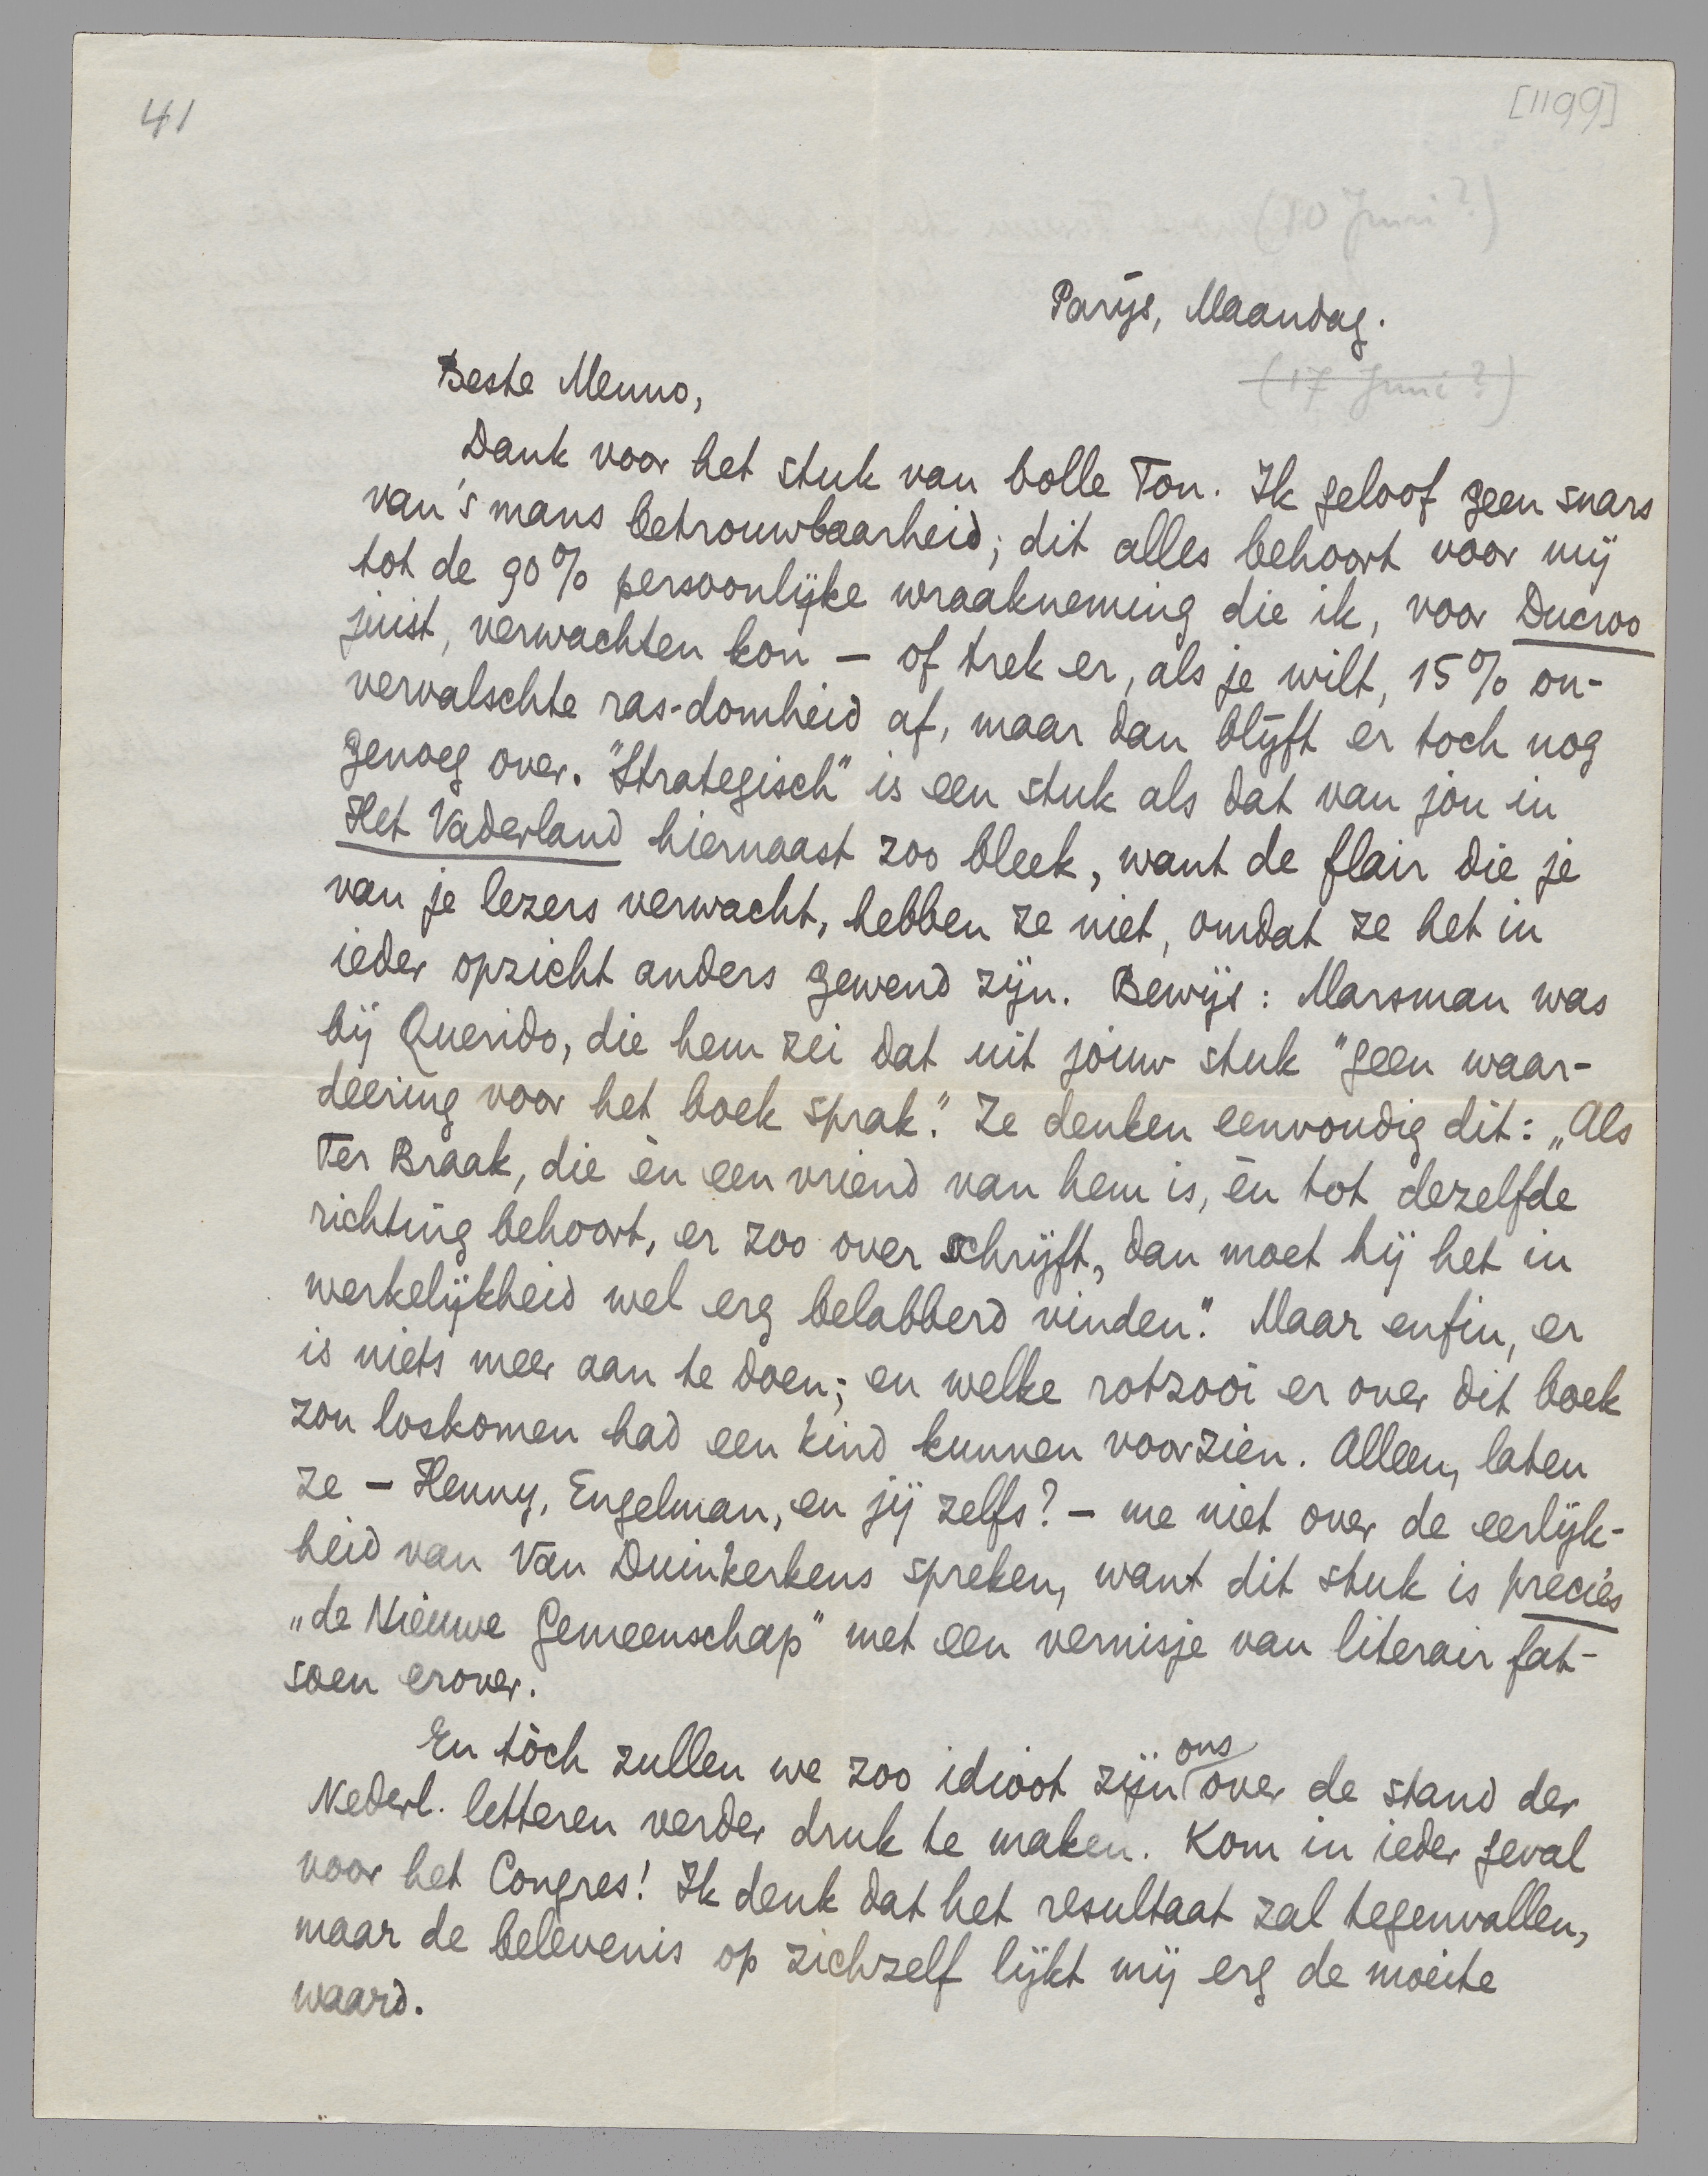 41
[1199]
(10 Juni?)
Parijs, Maandag.
(17 Juni?)
Beste Menno,
Dank voor het stuk van bolle Ton. Ik geloof geen snars
van 's mans betrouwbaarheid; dit alles behoort voor mij
tot de 90% persoonlijke wraakneming die ik, voor Ducroo
juist, verwachten kon – of trek er, als je wilt, 15% on-
vervalschte ras-domheid af, maar dan blijft er toch nog
genoeg over. "Strategisch" is een stuk als dat van jou in
Het Vaderland hiernaast zoo bleek, want de flair die je
van je lezers verwacht, hebben ze niet, omdat ze het in
ieder opzicht anders gewend zijn. Bewijs: Marsman was
bij Querido, die hem zei dat uit jouw stuk "geen waar-
deering voor het boek sprak." Ze denken eenvoudig dit: „Als
Ter Braak, die èn een vriend van hem is, èn tot dezelfde
richting behoort, er zoo over schrijft, dan moet hij het in
werkelijkheid wel erg belabberd vinden." Maar enfin, er
is niets meer aan te doen; en welke rotzooi er over dit boek
zou loskomen had een kind kunnen voorzien. Alleen, laten
ze – Henny, Engelman, en jij zelfs? – me niet over de eerlijk-
heid van Van Duinkerkens spreken, want dit stuk is precies
„de Nieuwe Gemeenschap" met een vernisje van literair fat-
soen erover.
En tòch zullen we zoo idioot zijn ons over de stand der
Nederl. letteren verder druk te maken. Kom in ieder geval
voor het Congres! Ik denk dat het resultaat zal tegenvallen,
maar de belevenis op zichzelf lijkt mij erg de moeite
waard.